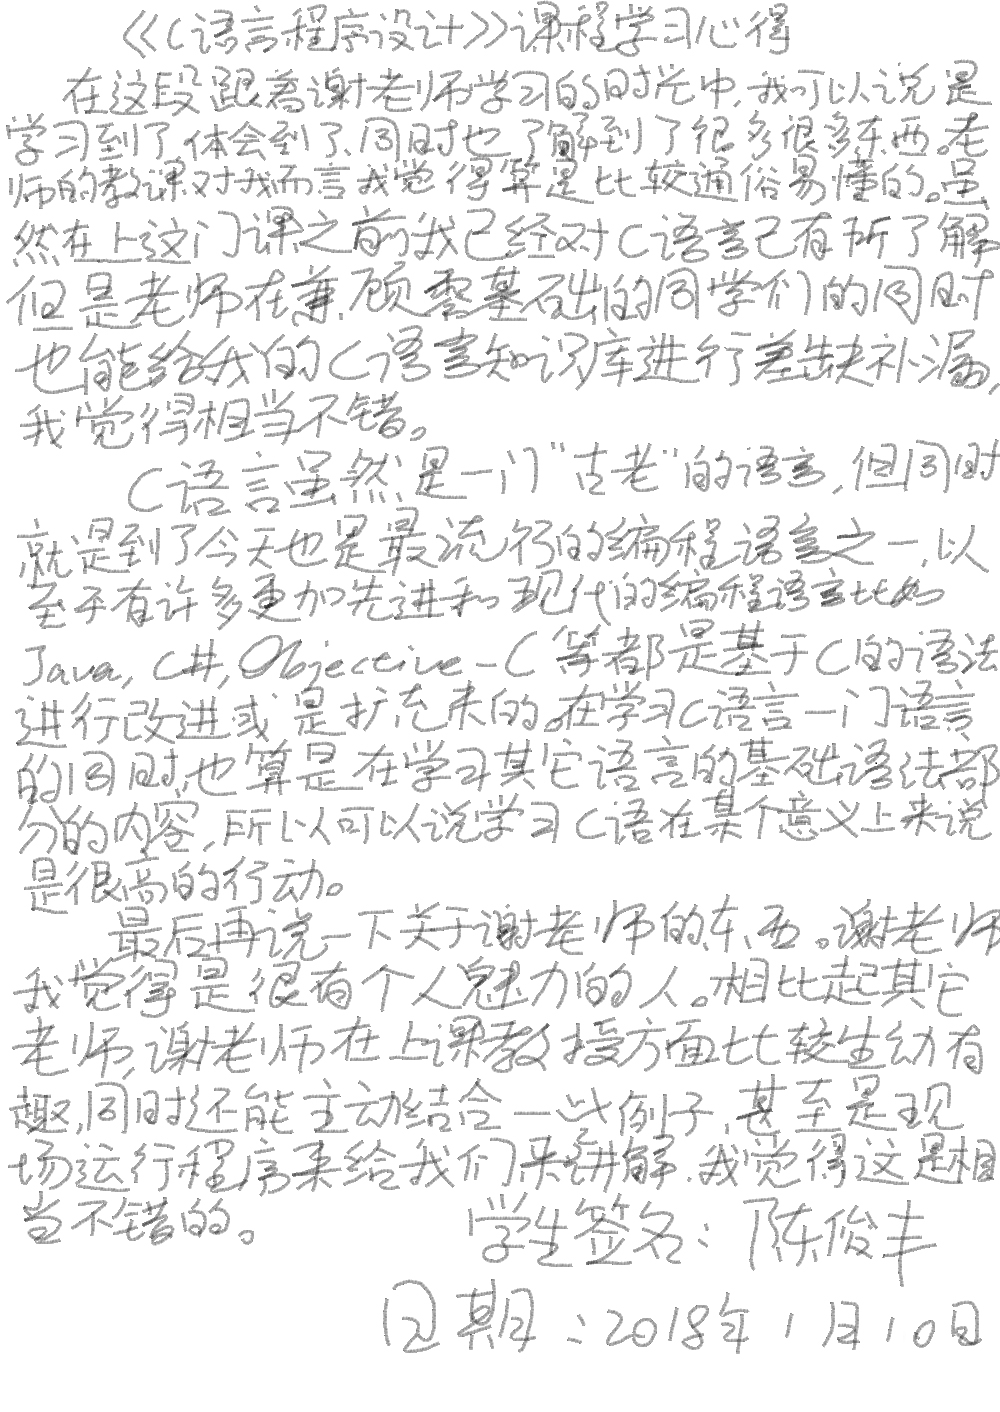 《《C语言程序设计》》课程学习心得
在这段跟着谢老师学习的的时光中,我可以说是
学习到了、体会到了、同时也了解到了很多很多东西。老
师的教课对我而言我觉得算是比较通俗易懂的。虽
然在上这门课之前我已经对C语言已有所了解
但是老师在兼顾零基础的同学们的同时
也能给我的C语言知识库进行差缺补漏,
我觉得相当不错。
C语言虽然是一门"古老"的语言,但同时
就是到了今天也是最流行的编程语言之一,以
至于有许多更加先进和现代的编程语言比如
Java, C#, Objective-C等都是基于C的语法
进行改进或是扩充来的。在学习C语言一门语言
的同时,也算是在学习其它语言的基础语法部
分的内容,所以可以说学习C语在某个意义上来说
是很高的行动。
最后再说一下关于谢老师的东西。谢老师
我觉得是很有个人魅力的人。相比起其它
老师,谢老师在上课教授方面比较生动有
趣,同时还能主动结合一些例子,甚至是现
场运行程序来给我们来讲解.我觉得这是相
当不错的。
学生签名:陈俊丰
日期:2018年1月10日